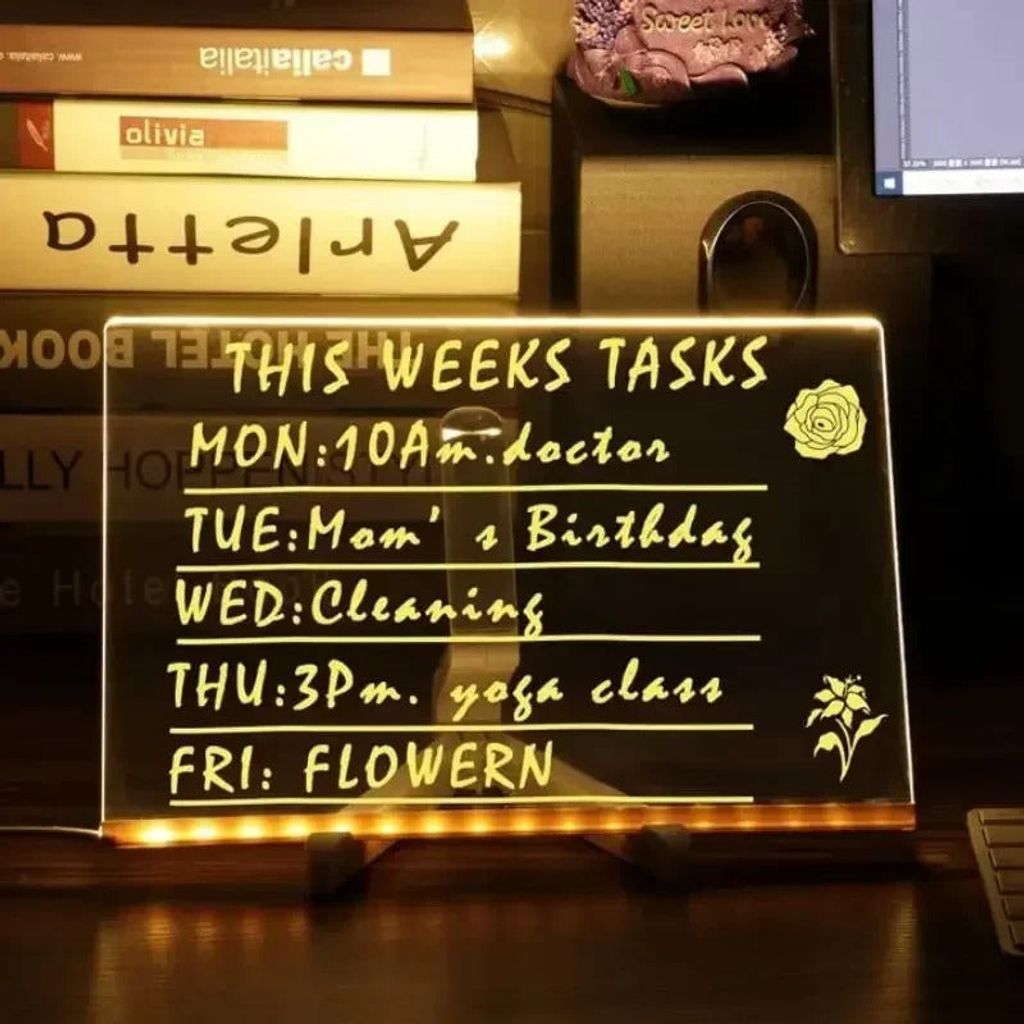 www.caliaitalia.
caliaitalia
Sweet Love
olivia
Arletta
THE HOTEL BOOK
LLY HOPPEN STY
e Hotel
THIS WEEKS TASKS
MON:10Am.doctor
TUE:Mom's Birthday
WED:Cleaning
THU:3Pm. yoga class
FRI: FLOWERN